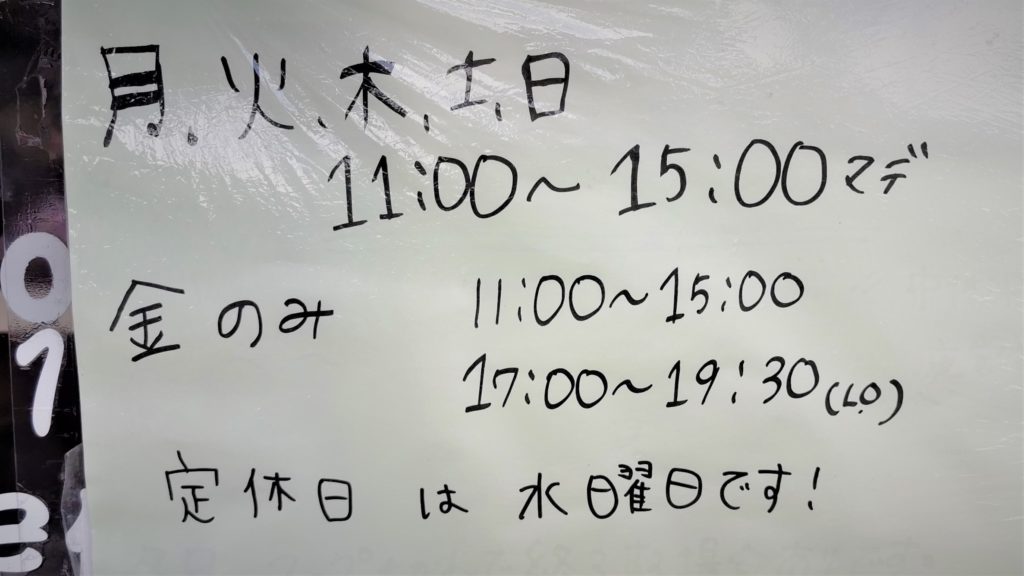 月、火、木、土、日
11:00～15:00マデ
金のみ 11:00～15:00
17:00～19:30(L.O)
定休日は水曜日です!
01